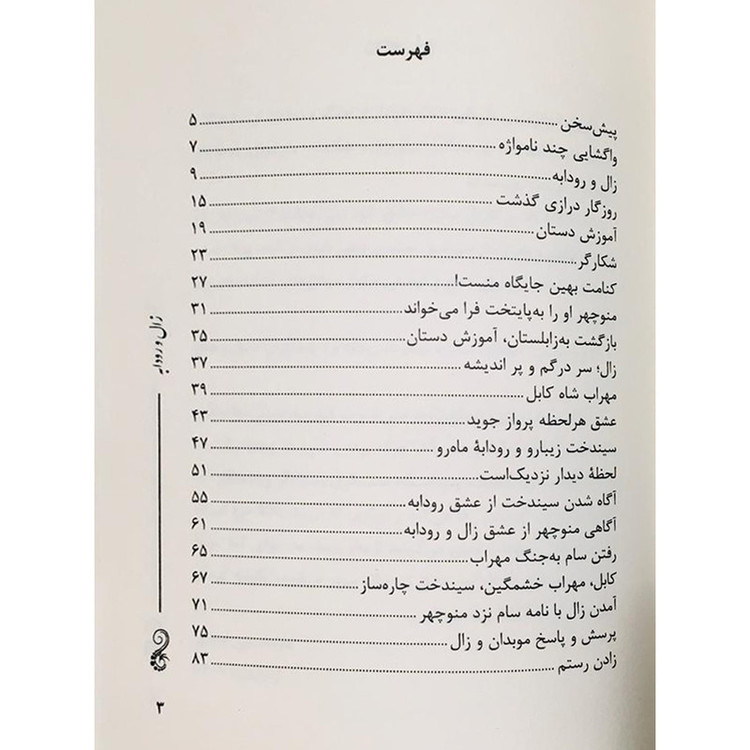 فهرست
پیش‌سخن ۵
واگشایی چند نامواژه ۷
زال و رودابه ۹
روزگار درازی گذشت ۱۵
آموزش دستان ۱۹
شکارگر ۲۳
کنامت بهین جایگاه منست! ۲۷
منوچهر او را به‌پایتخت فرا می‌خواند ۳۱
بازگشت به‌زابلستان، آموزش دستان ۳۵
زال؛ سر درگم و پر اندیشه ۳۷
مهراب شاه کابل ۳۹
عشق هرلحظه پرواز جوید ۴۳
سیندخت زیبارو و رودابهٔ ماه‌رو ۴۷
لحظهٔ دیدار نزدیک‌است ۵۱
آگاه شدن سیندخت از عشق رودابه ۵۵
آگاهی منوچهر از عشق زال و رودابه ۶۱
رفتن سام به‌جنگ مهراب ۶۵
کابل، مهراب خشمگین، سیندخت چاره‌ساز ۶۷
آمدن زال با نامه سام نزد منوچهر ۷۱
پرسش و پاسخ موبدان و زال ۷۵
زادن رستم ۸۳
زال و رودابه
۳